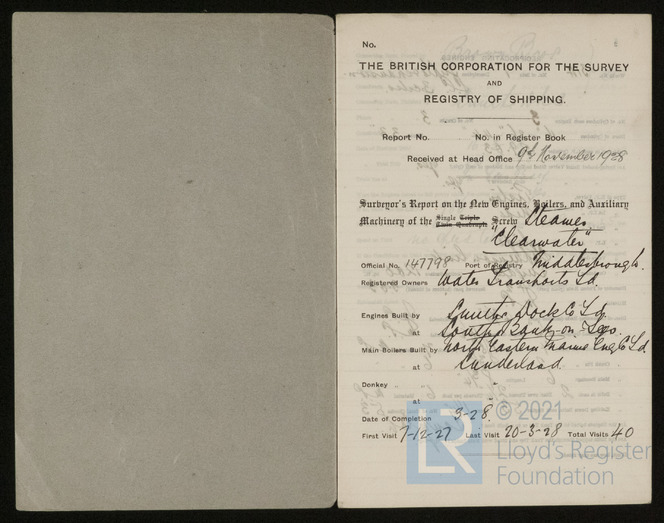 No.
THE BRITISH CORPORATION FOR THE SURVEY
AND
REGISTRY OF SHIPPING.
Report No. No. in Register Book
Received at Head Office 9th November 1928
Surveyor's Report on the New Engines, Boilers, and Auxiliary
Machinery of the Single Triple Twin Quadruple Screw Steamer
"Clearwater"
Official No. 147798 Port of Registry Middlesbrough.
Registered Owners Water Transports Ld.
Engines Built by Smiths Dock Co Ld.
at South Bank-on-Tees.
Main Boilers Built by North Eastern Marine Eng Co Ld.
at Sunderland
Donkey "
at
Date of Completion 3-28.
First Visit 7-12-27 Last Visit 20-3-28 Total Visits 40
LR © 2021
Lloyd's Register
Foundation